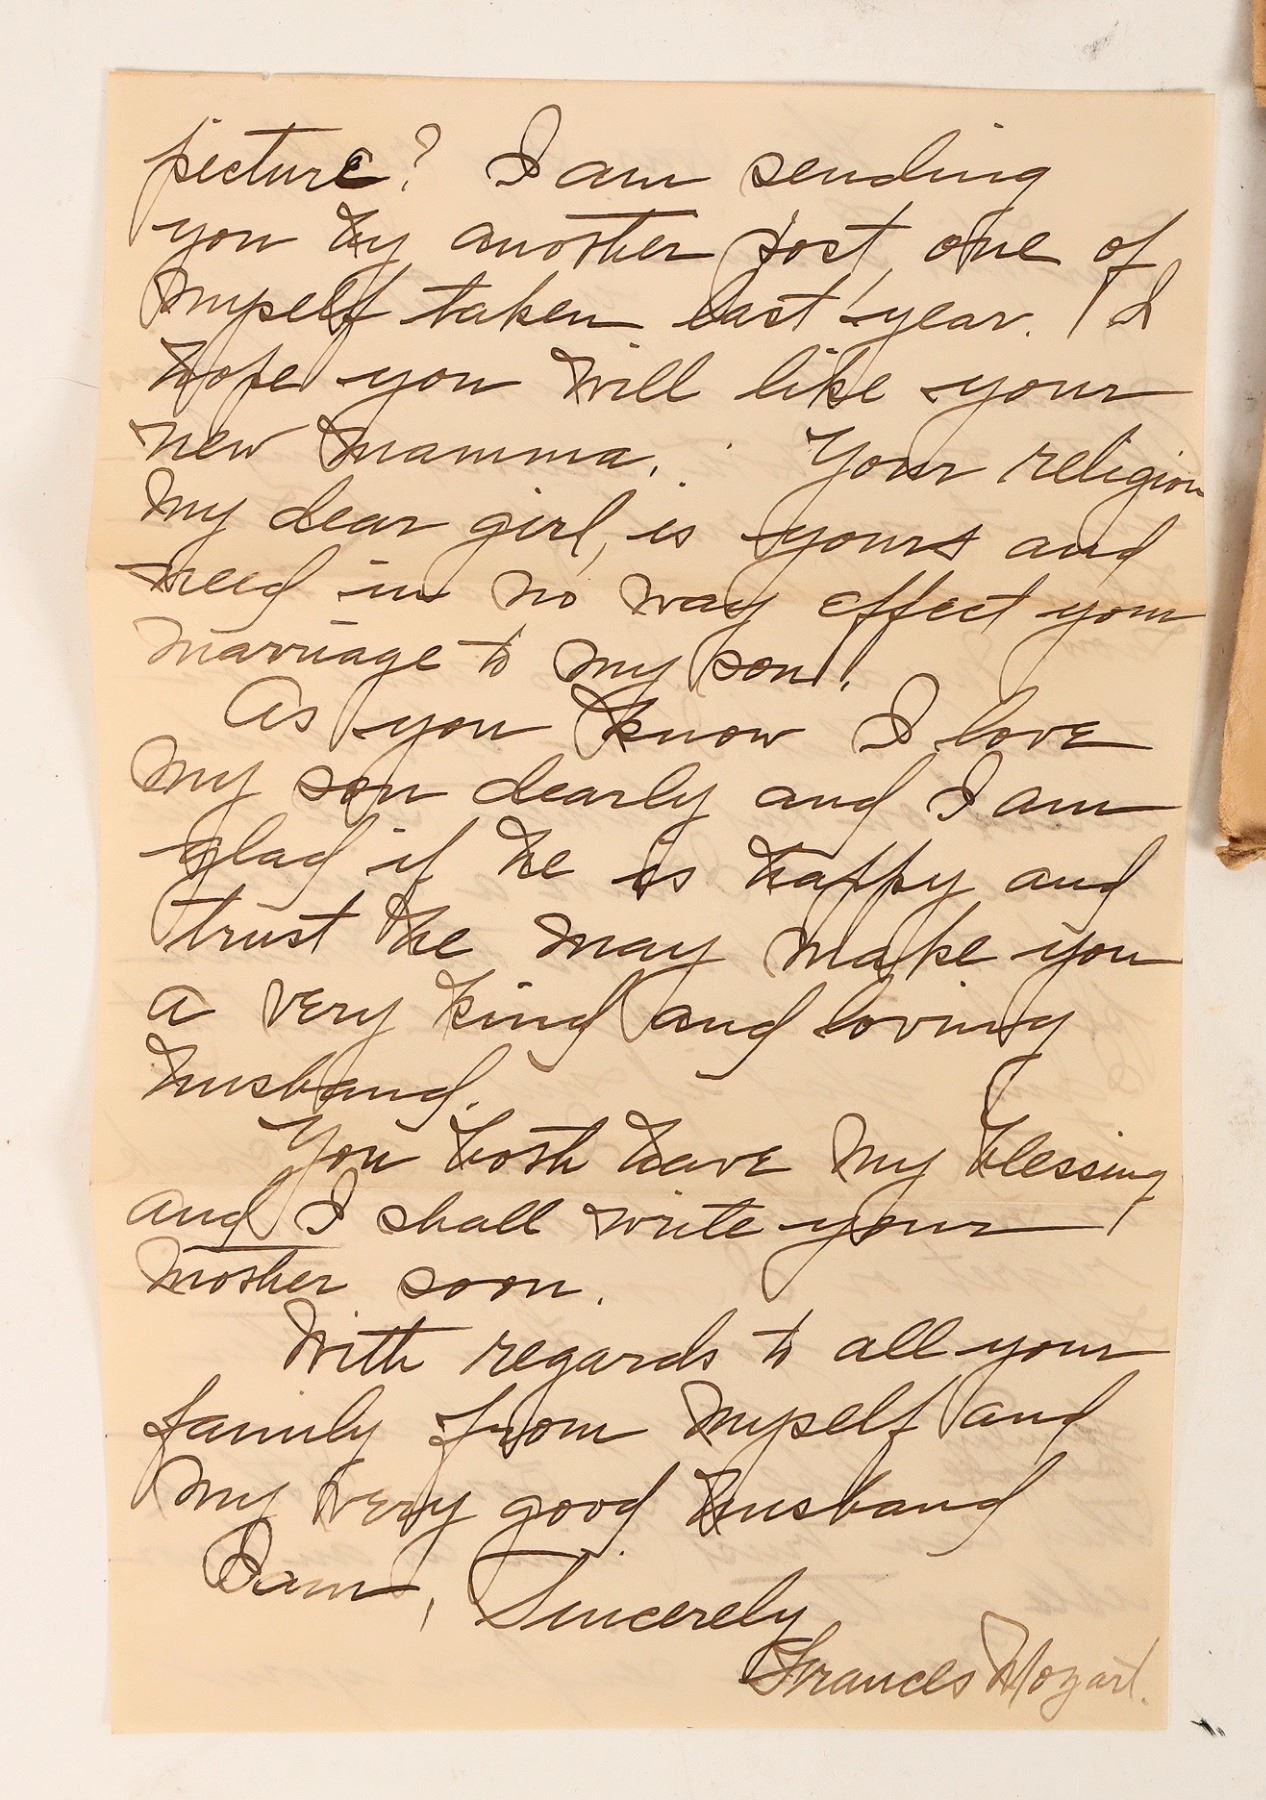 picture? I am sending
you by another post, one of
myself taken last year. I
hope you will like your
new mamma. Your religion
my dear girl, is yours and
need in no way effect your
marriage to my son!
As you know I love
my son dearly and I am
glad if he is happy and
trust he may make you
a very kind and loving
husband.
You both have my blessing
and I shall write your
mother soon.
With regards to all your
family from myself and
my very good husband
I am, Sincerely
Frances Mozart.